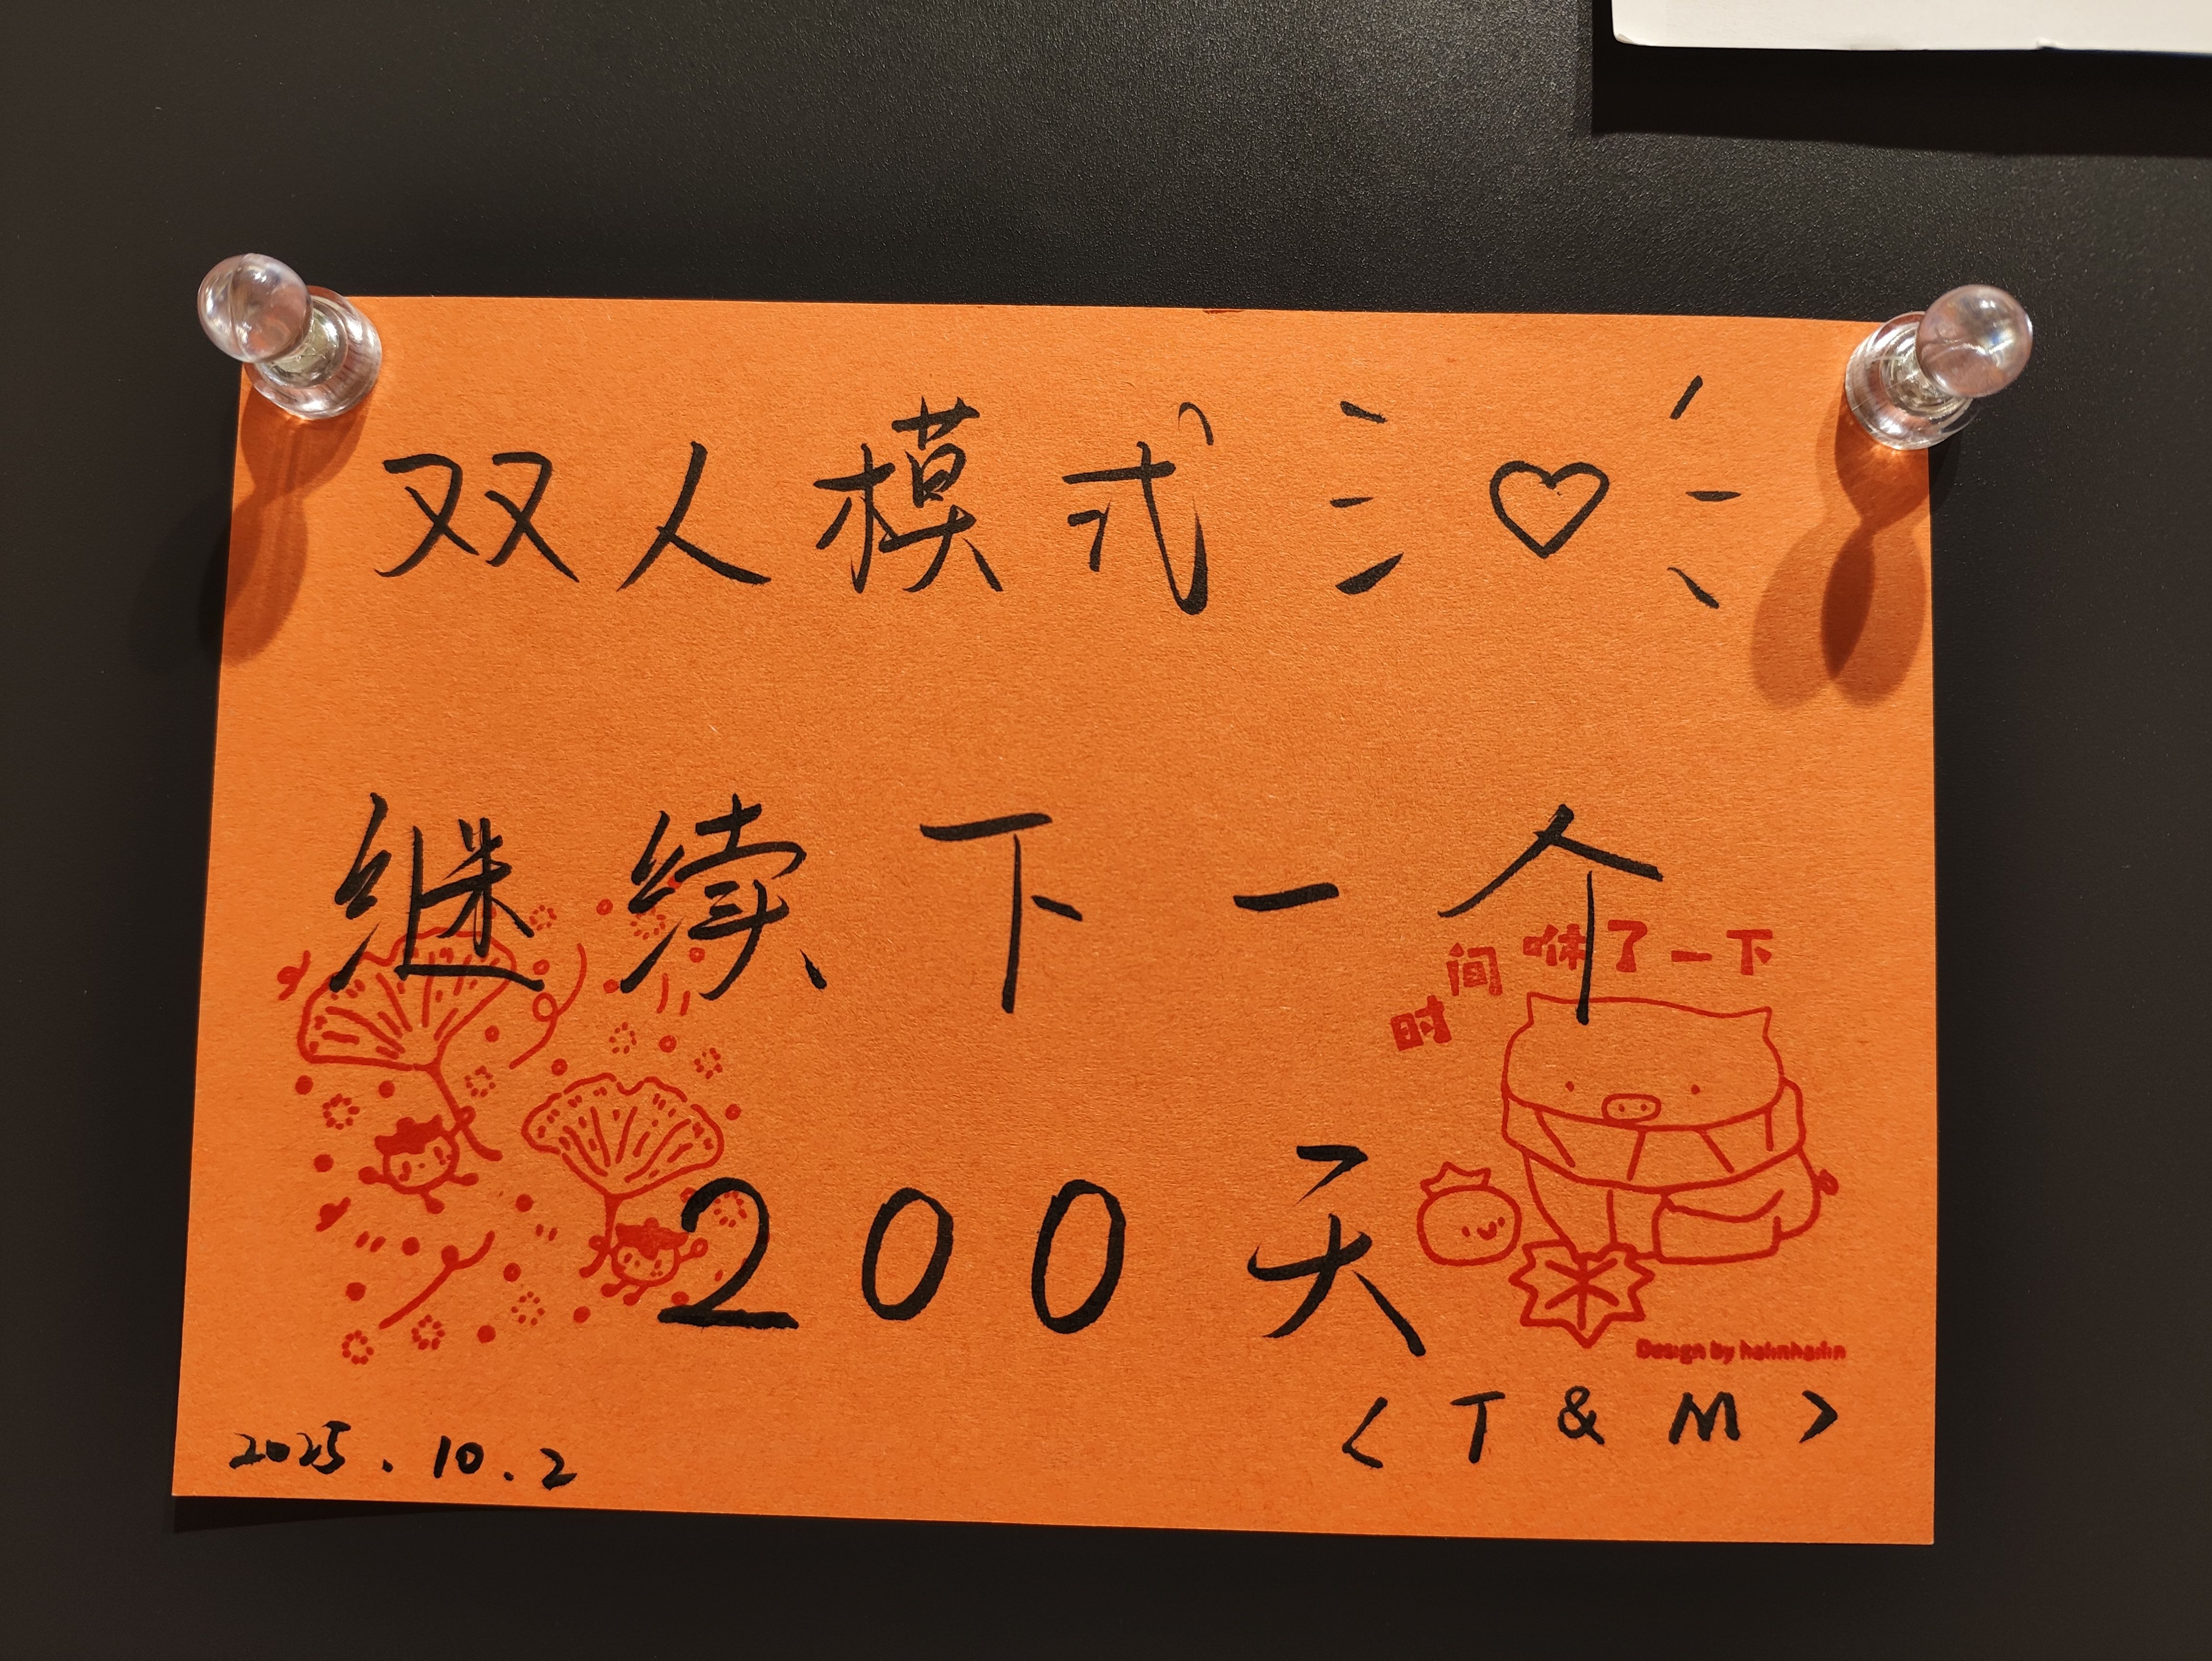 双人模式 ♡
继续下一个
时间咻了一下
200天
Design by hainhaifin
<T & M>
2025.10.2